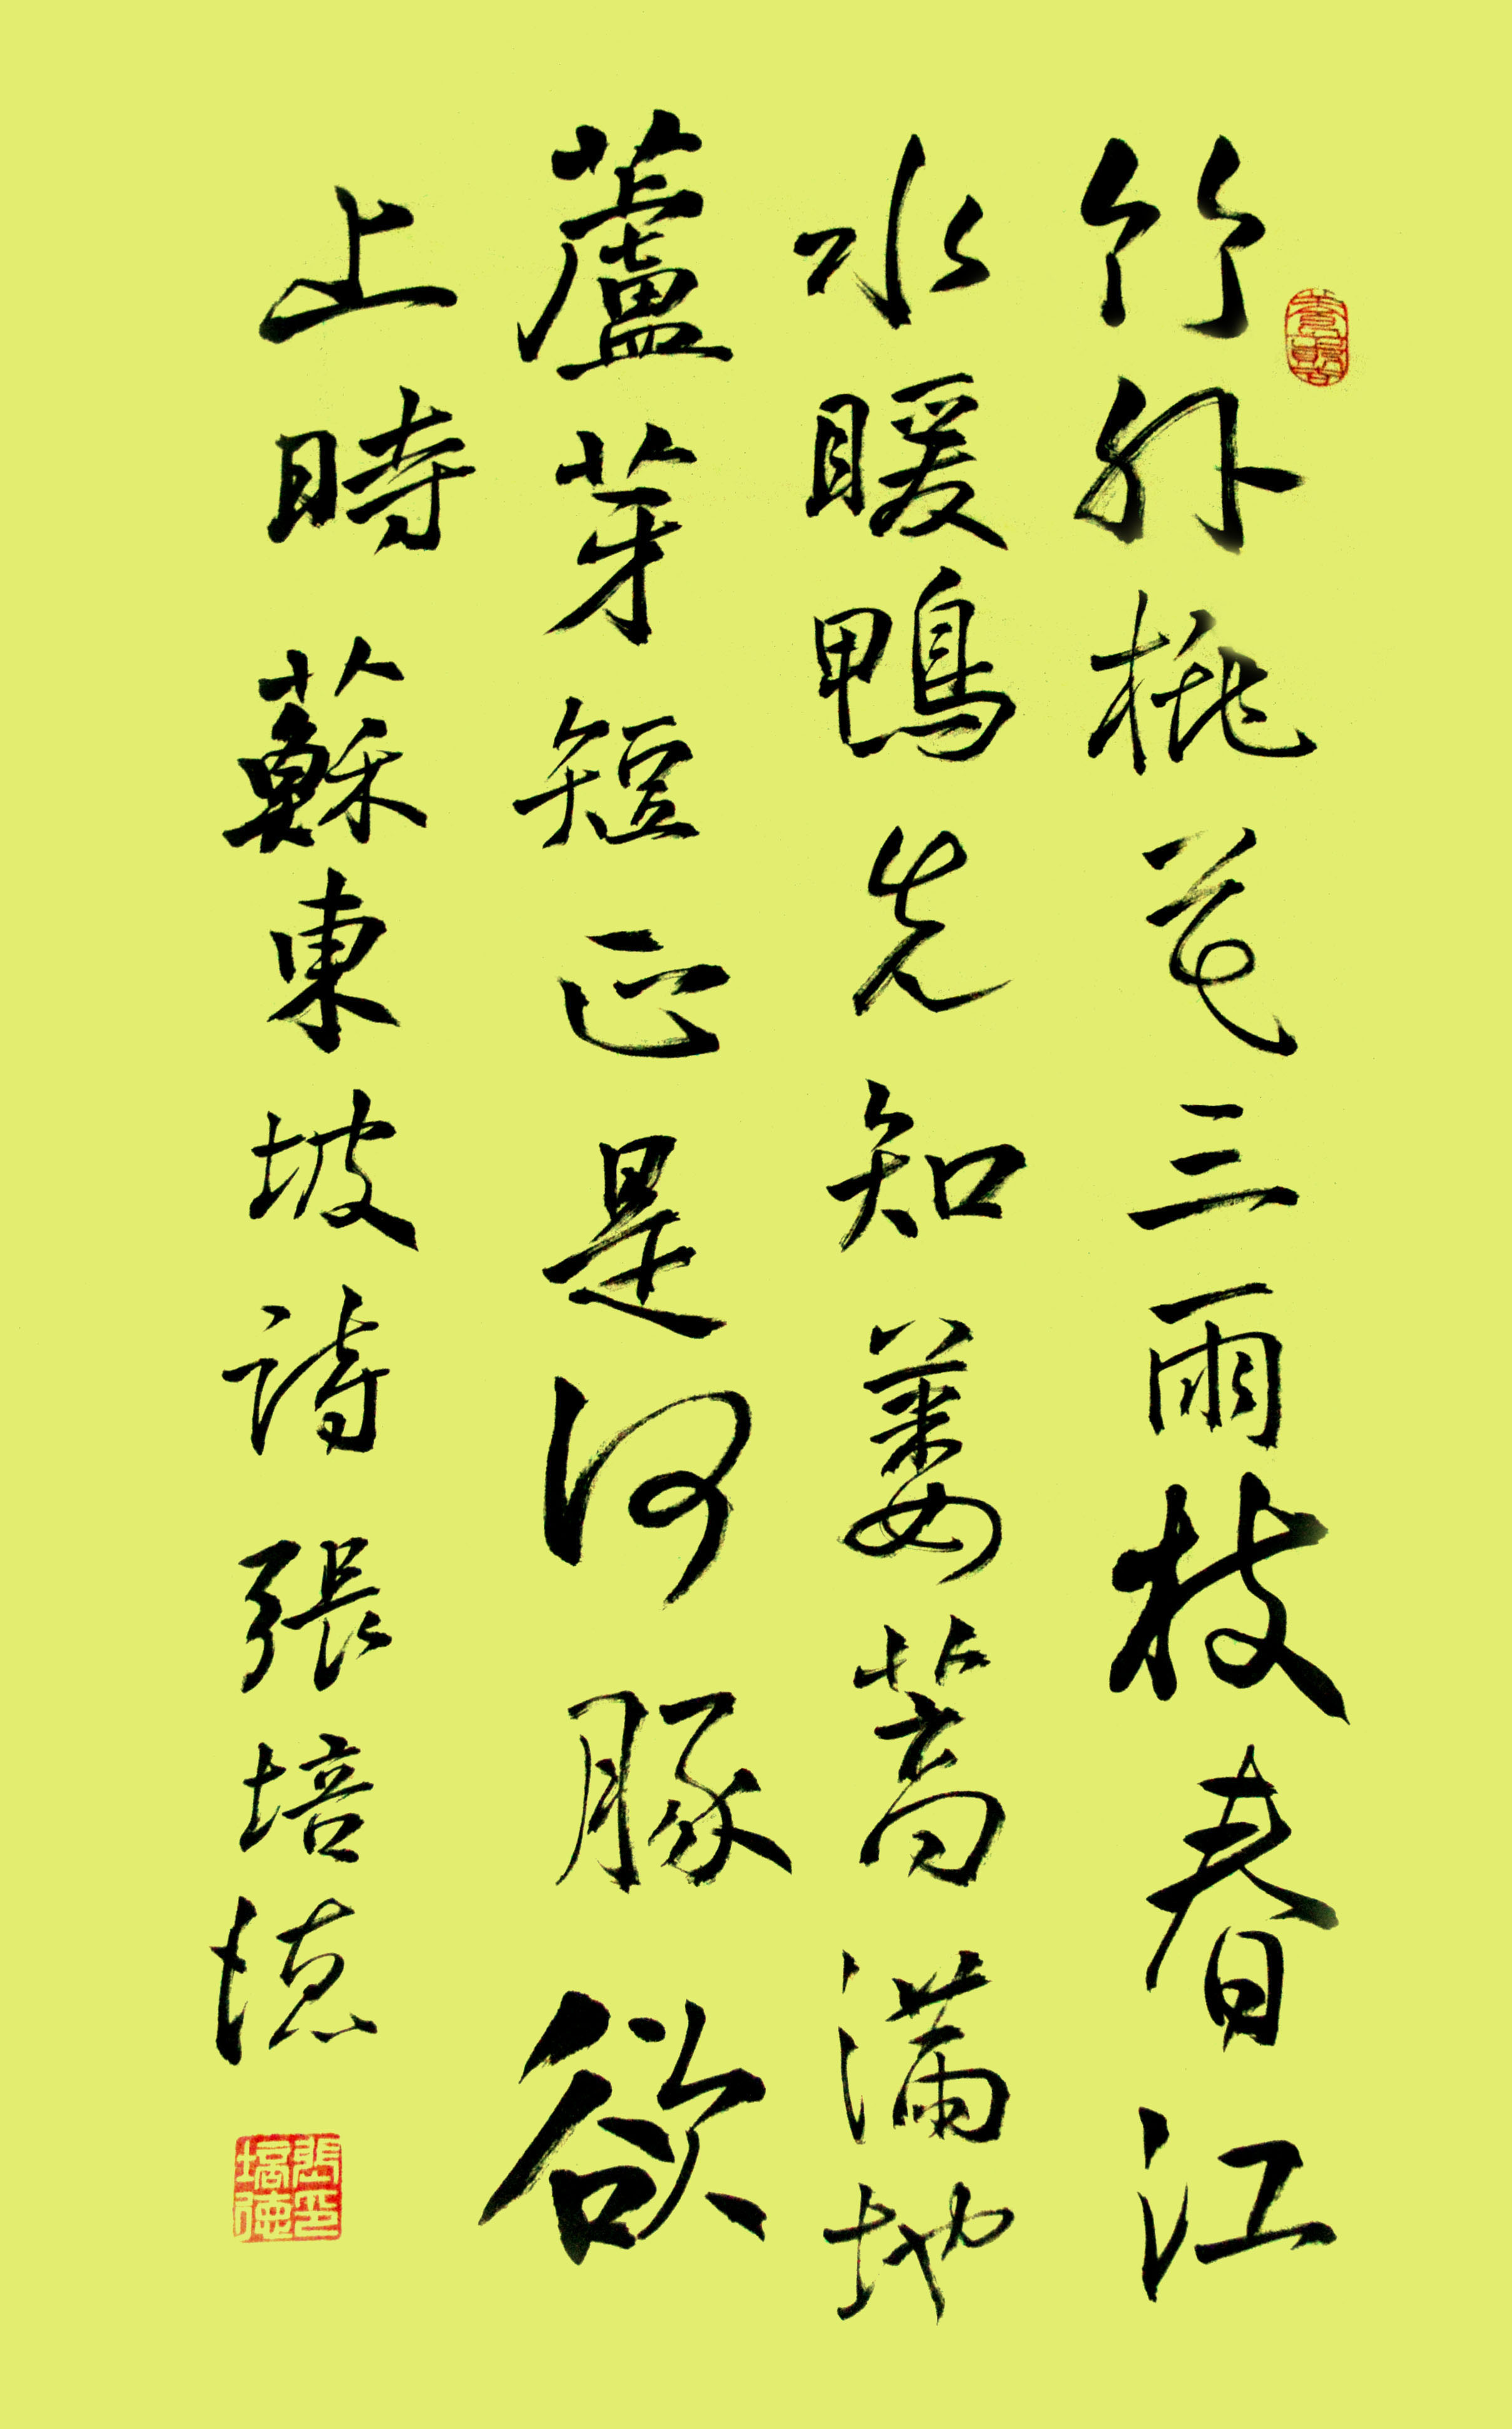 竹外桃花三兩枝春江
水暖鴨先知蔞蒿滿地
蘆芽短正是河豚欲
上時 蘇東坡詩 張培德